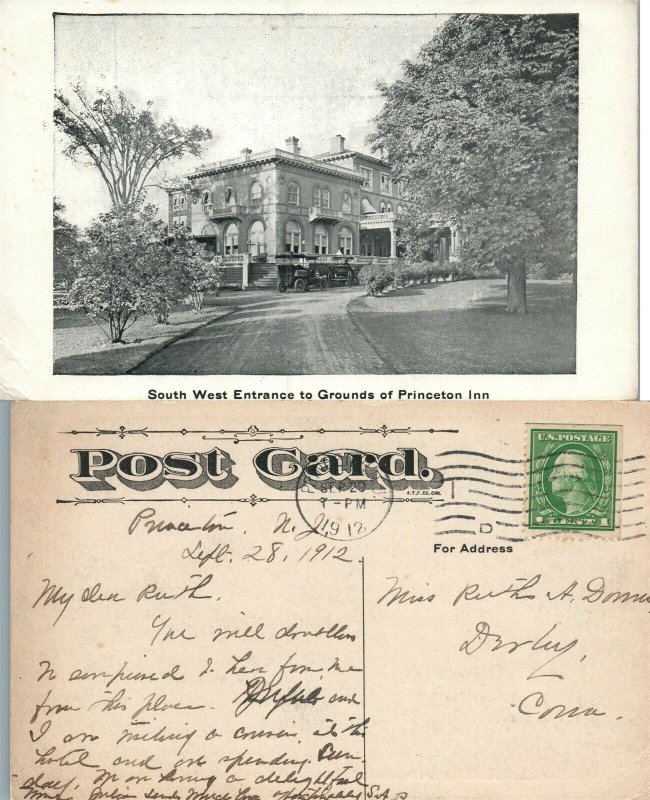 South West Entrance to Grounds of Princeton Inn
Post Card.
A.T.F.CO. CHI.
U.S. POSTAGE
1 1
7-PM
1912
D
For Address
Princeton, N.J.
Sept. 28, 1912
My dear Ruth.
You will doubtless
be surprised to hear from me
from this place. and
I are visiting a cousin at this
hotel and are spending Sun-
day. Am having a delightful
time. Julia sends much love S.A.P.
Miss Ruth A.
Derby,
Conn.